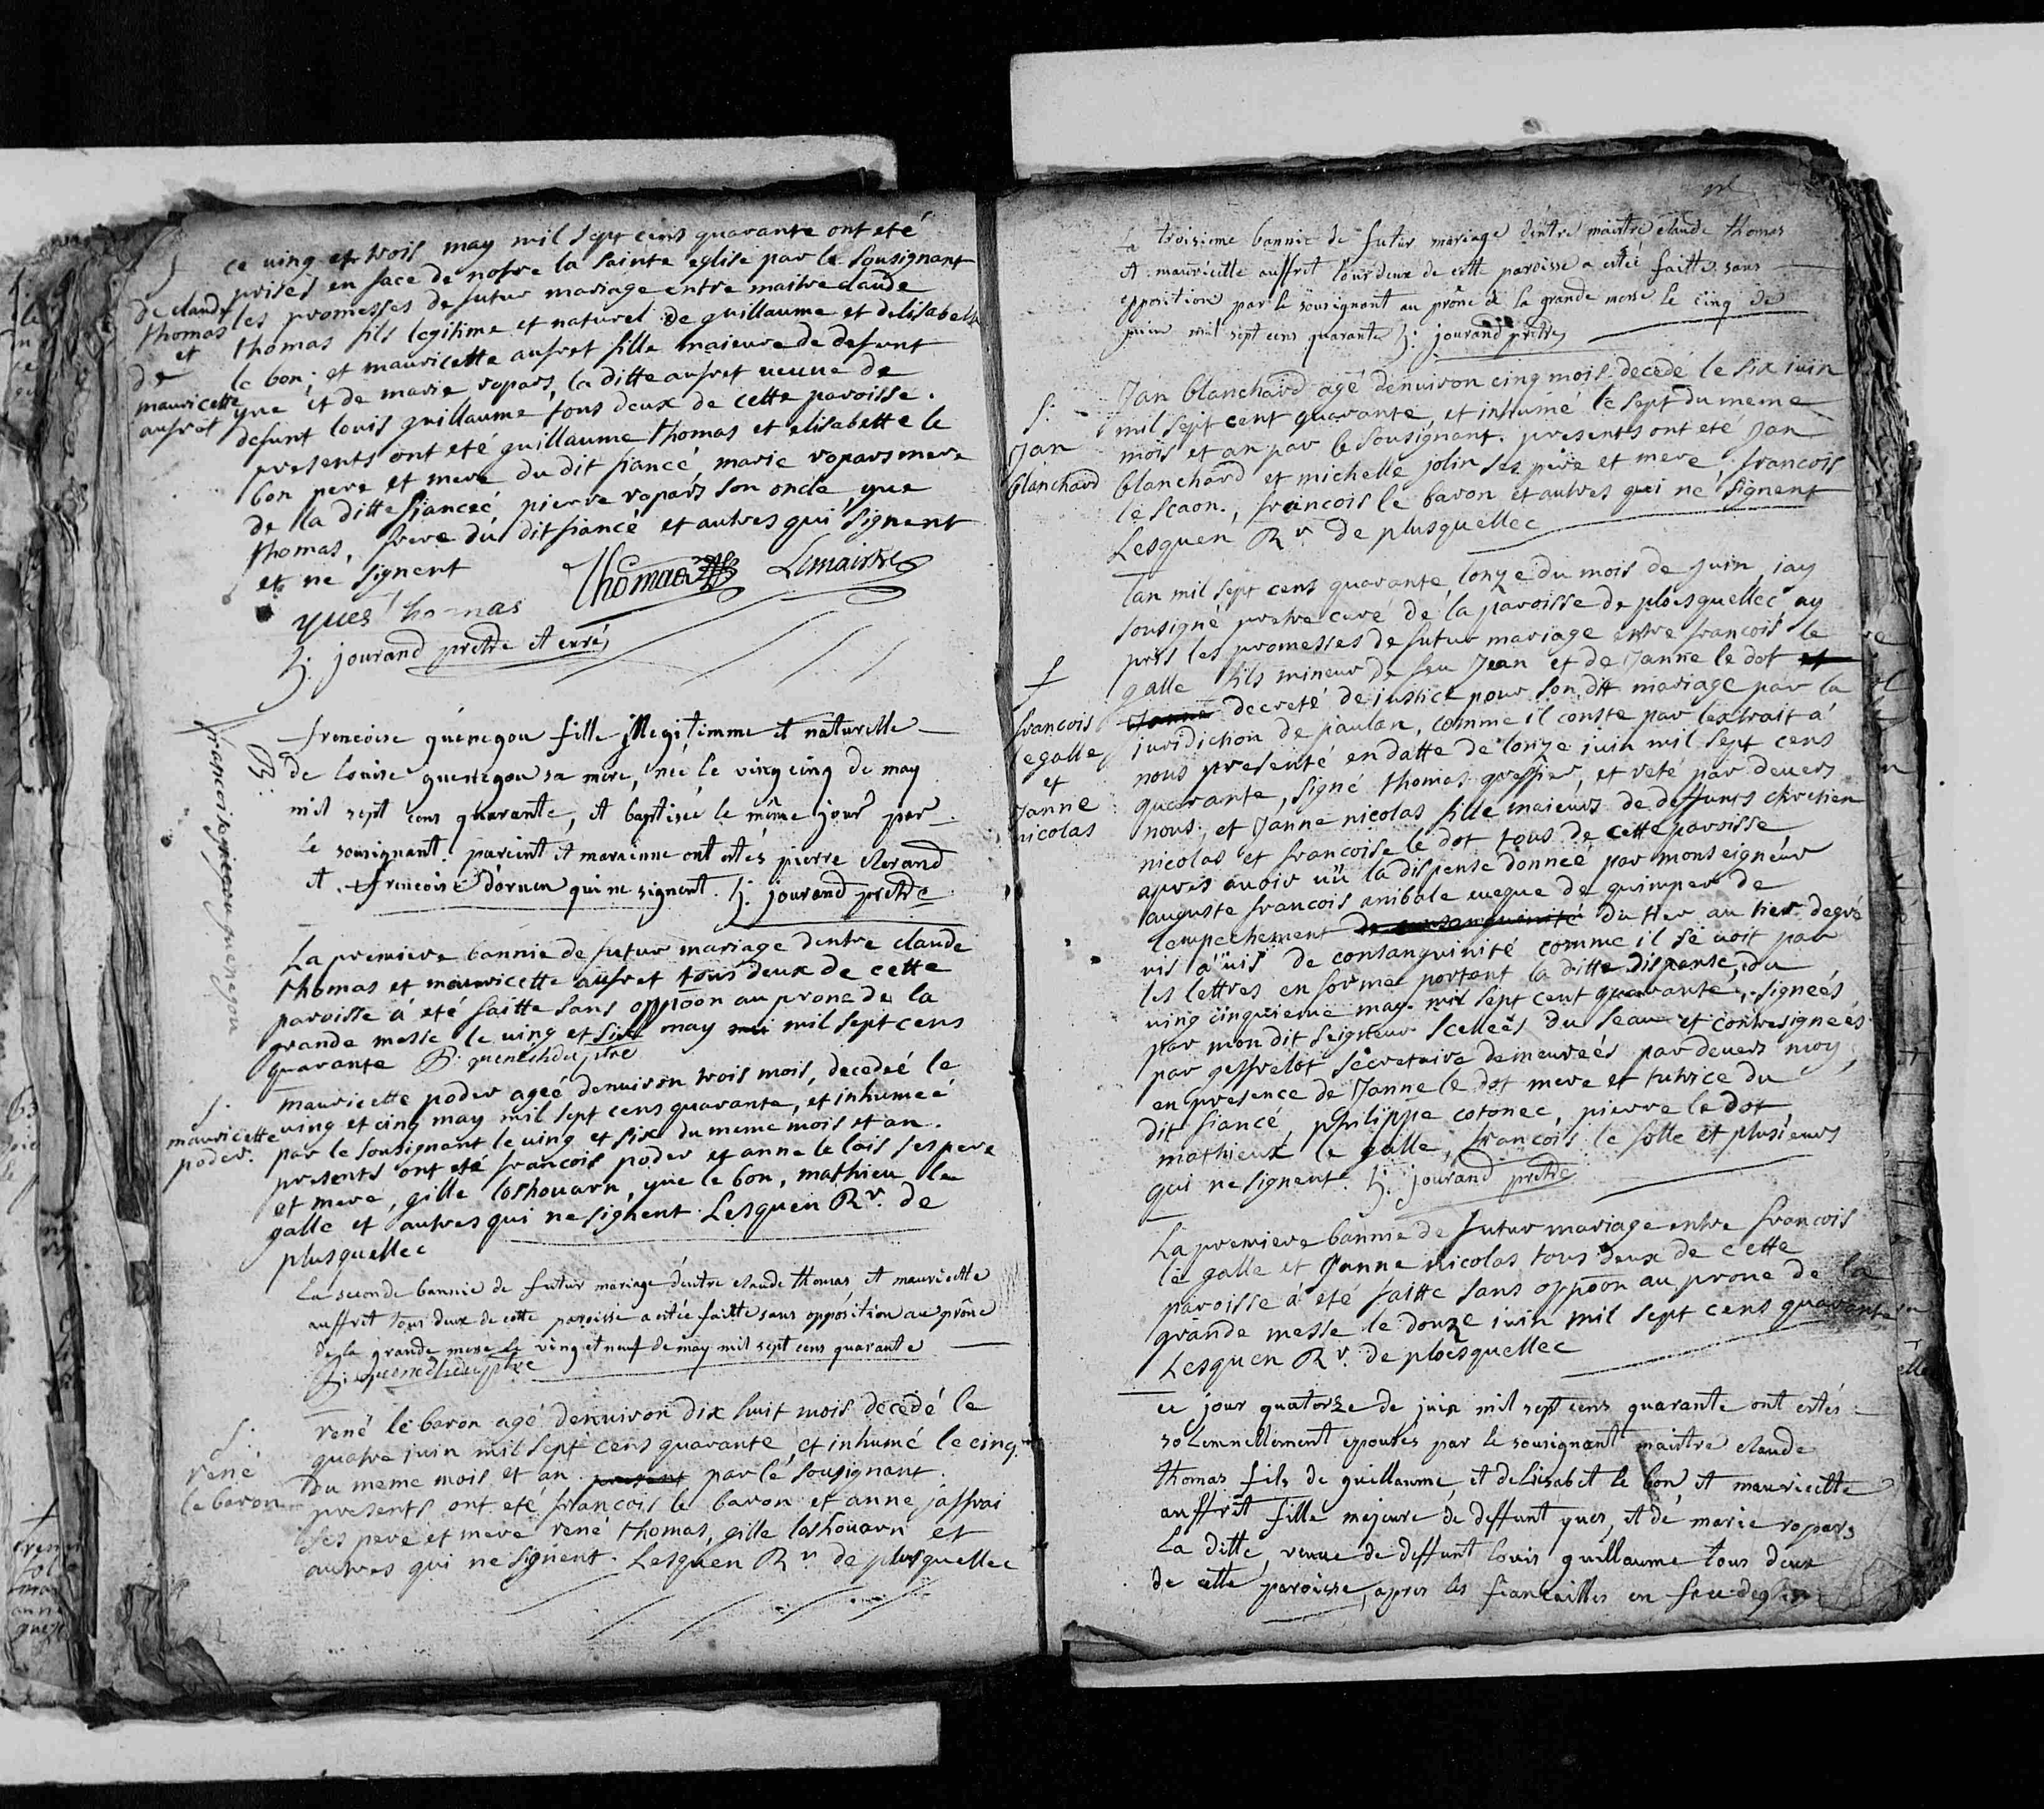 ce uing et trois may mil sept cens quarante ont eté
prises en face de nostre la sainte eglise par le sousignant
les promesses de futur mariage entre maitre claude
thomas fils legitime et naturel de guillaume et delisabeth
le bon; et mauricette aufret fille maieure de defunt
yue et de marie ropars, la ditte aufret ueuue de
defunt louis guillaume tous deux de cette paroisse.
presents ont eté guillaume thomas et elisabette le
bon pere et mere du dit fiancé, marie ropars mere
de la ditte fianceé pierre ropars son oncle, yue
thomas, frere du dit fiancé et autres qui signent
et ne signent
Thomas Lemaistre
yues thomas
h: jourand pretre et curé
de claude
thomas
et
de
mauricette
aufret
francoise guenegou fille illegitimme et naturelle
de louise guenegou sa mere, née le vingt cinq de may
mil sept cens quarante, et baptisée le même jour par
le sousignant. pareint et maraenne ont estés pierre clerand
et francoise dornen qui ne signent. h: jourand pretre
B:
La premiere bannie de futur mariage dentre claude
thomas et mauricette aufret tous deux de cette
paroisse á eté faitte sans oppoon au prone de la
grande messe le uing et six may mil sept cens
quarante
mauricette poder ageé denuiron trois mois, decedeé le
uing et cinq may mil sept cens quarante, et inhumeé
par le sousignant le uing et six du meme mois et an.
presents ont eté francois poder et anne le lais ses pere
et mere, gille loshouarn, yue le bon, mathieu le
galle et autres qui ne signent. Lesquen Rr. de
plusquellec
S.
mauricette
poder.
La seconde bannie de futur mariage dentre claude thomas et mauricette
auffret tous deux de cette paroisse a estée faitte sans opposition au prône
de la grande messe le vingt neuf de may mil sept cens quarante
rené le baron agé denuiron dix huit mois decedé le
quatre iuin mil sept cens quarante, et inhumé le cinq
du meme mois et an present par le sousignant.
presents ont eté francois le baron et anne jaffrai
ses pere et mere rené thomas, gille loshouarn et
autres qui ne signent. Lesquen Rr de plusquellec
S.
rené
le baron
La troisieme bannie de futur mariage dentre maistre claude thomas
et mauricette auffret tous deux de cette paroisse a estée faitte sans
opposition par le sousignant au prône de la grande messe le cinq de
juin mil sept cens quarante h: jourand pretre
Jan blanchard agé denuiron cinq mois decedé le six iuin
mil sept cent quarante, et inhumé le sept du meme
mois et an par le sousignant. presents ont eté Jan
blanchard et michelle jolin ses pere et mere, francois
le scaon., francois le baron et autres qui ne signent
Lesquen Rr de plusquellec
S.
Jan
blanchard
lan mil sept cens quarante, lonze du mois de Juin, iay
sousigné pretre curé de la paroisse de ploesquellec ay
pris les promesses de futur mariage entre francois le
galle fils mineur de feu Jean et de Janne le dot et
Janne decreté de iustice pour son dit mariage par la
juridiction de paulan, comme il conste par lextrait á
nous presenté en datte de lonze iuin mil sept cens
quarante, signé thomas greffier, et reté par deuers
nous, et Janne nicolas fille maieure de deffunts chretien
nicolas et francoise le dot tous de cette paroisse
apres auoir uü la dispense donneé par monseigneur
auguste francois anibale eueque de quimper de
lempechement de consanguinité du tier au tier degré
uis á uis de consanguinité comme il se uoit par
les lettres en forme portant la ditte dispense, du
uing cinquieme may mil sept cent quarante, signeés
par mon dit seigneur scelleés du seau et contresigneés
par geffrelot secretaire demeureés par deuers moy,
en presence de Janne le dot mere et tutrice du
dit fiancé, philippe cotonec, pierre le dot,
mathieux le galle, francois le solle et plusieurs
qui ne signent. h: jourand pretre
francois
legalle
et
Janne
nicolas
La premiere bannie de futur mariage entre francois
le galle et Janne nicolas tous deux de cette
paroisse á eté faitte sans oppoon au prone de la
grande messe le douze iuin mil sept cens quarante
Lesquen Rr. de ploesquellec
ce jour quatorze de juin mil sept cens quarante ont estés
solemnellement epousés par le sousignant maistre claude
thomas fils de guillaume, et delisabet le bon et mauricette
auffret fille majeure de deffunt yues, et de marie ropars
La ditte, veuue de deffunt louis guillaume tous deux
de cette paroisse, apres les fiancailles en